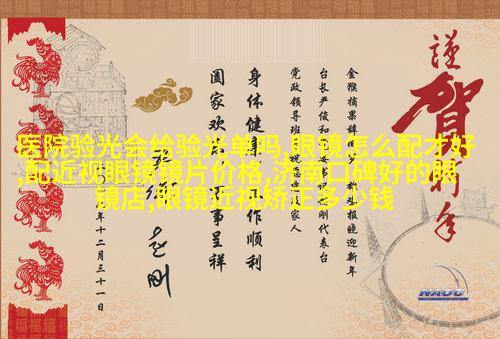 医院验光会给验光单吗,眼镜怎么配才好
,配近视眼镜镜片价格,济南口碑好的眼
镜店,眼镜近视矫正多少钱
謹賀新年
金猴摘果辞 报晓迎新年
台长严俊和 刚代表台
党政领导班 家人
身体健康 工作顺利
阖家欢 事呈祥
年十二月三十一日
NAOC